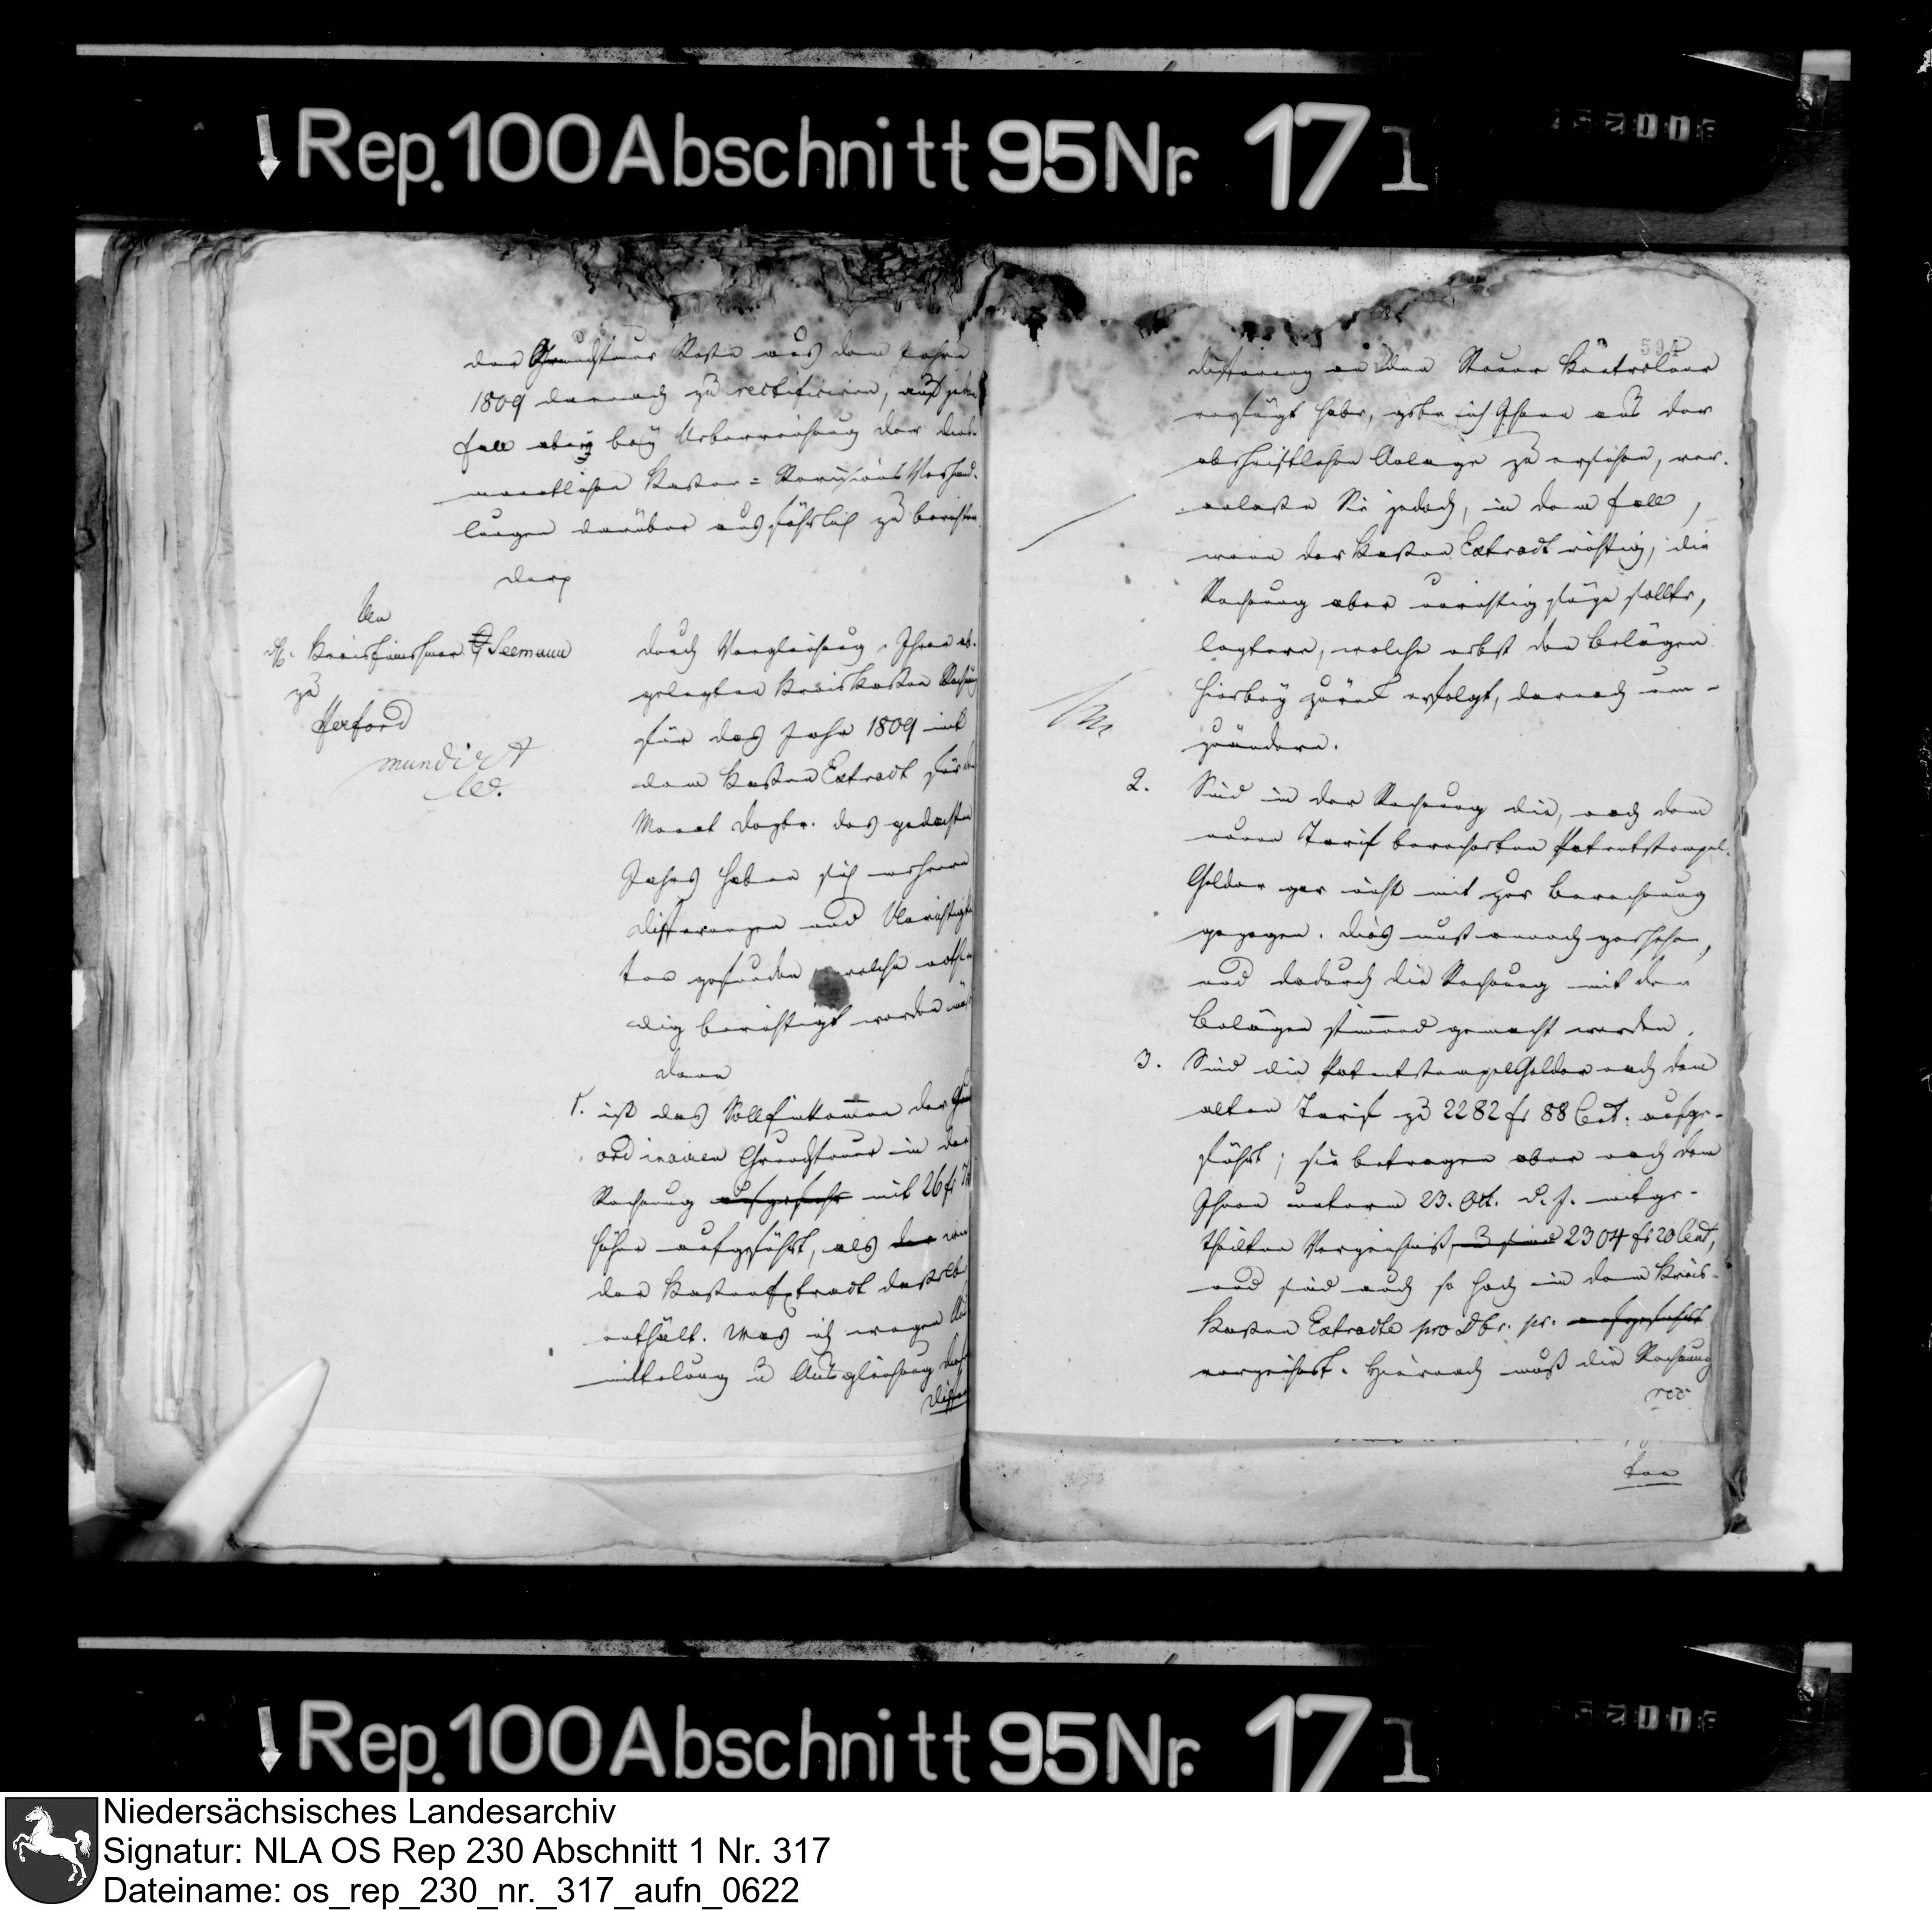 Rep. 100 Abschnitt 95 Nr. 171
der Grundsteuer Reste aus dem Jahre
1809 darnach zu rectificiren, auf jeden
Fall aber bey Ueberreichung der
monatlichen Kassen = Revisions Verhand-
lungen darüber ausführlich zu berichten.
An
Kreiseinnehmer Seemann
zu
Herford
mundirt
durch Vergleichung Ihrer ab-
gelegten Kreiskassen
für das Jahr 1809 mit
dem Kassen Extract für
Monat Dezbr. des gedachten
Jahrs haben sich mehrere
Differenzen und
ten gefunden welche
dig berichtigt werden
denn
1. ist das Solleinkommen der
ordinairen Grundsteuer in der
Rechnung aufgeführt mit 26 fr
höher aufgeführt, als der
der Kassen Extract dasselbe
enthält. Was ich wegen
mittelung u Ausgleichung
594
Differenz an den Steuer Kontroleur
verfügt habe, gebe ich Ihnen aus der
abschriftlichen Anlage zu ersehen, ver-
anlasse Sie jedoch, in dem Fall,
wenn der Kassen Extract richtig, die
Rechnung aber unrichtig seyn sollte,
letztere, welche nebst den Belägen
hierbey zurück erfolgt, darnach um-
zuändern.
2. Sind in der Rechnung die, nach dem
neuen Tarif berechneten Patentstempel-
Gelder gar nicht mit zur Berechnung
gezogen. Dies muß annoch geschehen,
und dadurch die Rechnung mit den
Belägen stimmend gemacht werden.
3. Sind die Patentstempel Gelder nach dem
alten Tarif zu 2282 fr 88 Cent. aufge-
führt; sie betragen aber nach dem
Ihnen unterm 23. Oct. d. J. mitge-
theilten Verzeichniß 2304 fr 20 Cent,
und sind auch so hoch in dem Kreis-
Kassen Extracte pro Dbr. pr. aufgeführt
verzeichnet. Hiernach muß die Rechnung
rec
ten
Rep. 100 Abschnitt 95 Nr. 171
Niedersächsisches Landesarchiv
Signatur: NLA OS Rep 230 Abschnitt 1 Nr. 317
Dateiname: os_rep_230_nr._317_aufn_0622